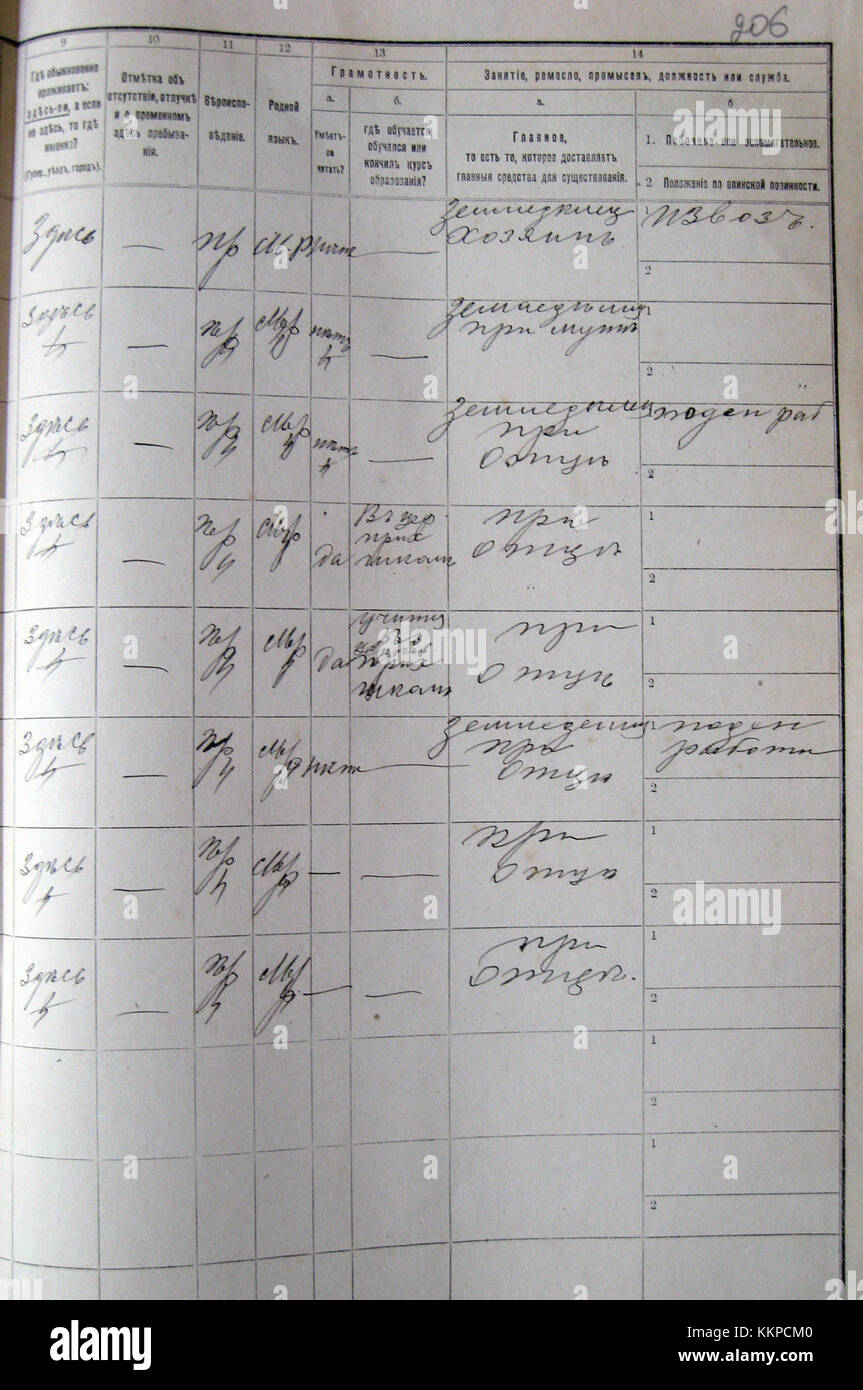 206
9 10 11 12 13 14
Гдѣ обыкновенно
проживаетъ:
здѣсь-ли, а если
не здѣсь, то гдѣ
именно?
(Губер., уѣздъ, городъ).
Отмѣтка объ
отсутствіи, отлучкѣ
и о временномъ
здѣсь пребыва-
ніи.
Вѣроиспо-
вѣданіе.
Родной
языкъ.
Грамотность.
а.
Умѣетъ-
ли
читать?
б.
гдѣ обучается,
обучался или
кончилъ курсъ
образованія?
Занятіе, ремесло, промыселъ, должность или служба.
а.
Главное,
то есть то, которое доставляетъ
главныя средства для существованія.
б
1. Побочное или вспомогательное.
2 Положеніе по воинской повинности.
Здѣсь — пр —
Хозяинъ
извозъ.
2
Здѣсь — пр нѣтъ —
при мужѣ
1
2
Здѣсь — пр нѣтъ —
при
Отцѣ
поден раб
2
Здѣсь — пр да
прих
школѣ
при
Отцѣ
1
2
Здѣсь — пр да
прих
школѣ
при
Отцѣ
1
2
Здѣсь — пр нѣт —
при
Отцѣ
поден
работа
2
Здѣсь — пр — —
при
Отцѣ
1
2
Здѣсь — пр — —
при
Отцѣ.
1
2
1
2
1
2
alamy
a
alamy
Image ID: KKPCM0
www.alamy.com